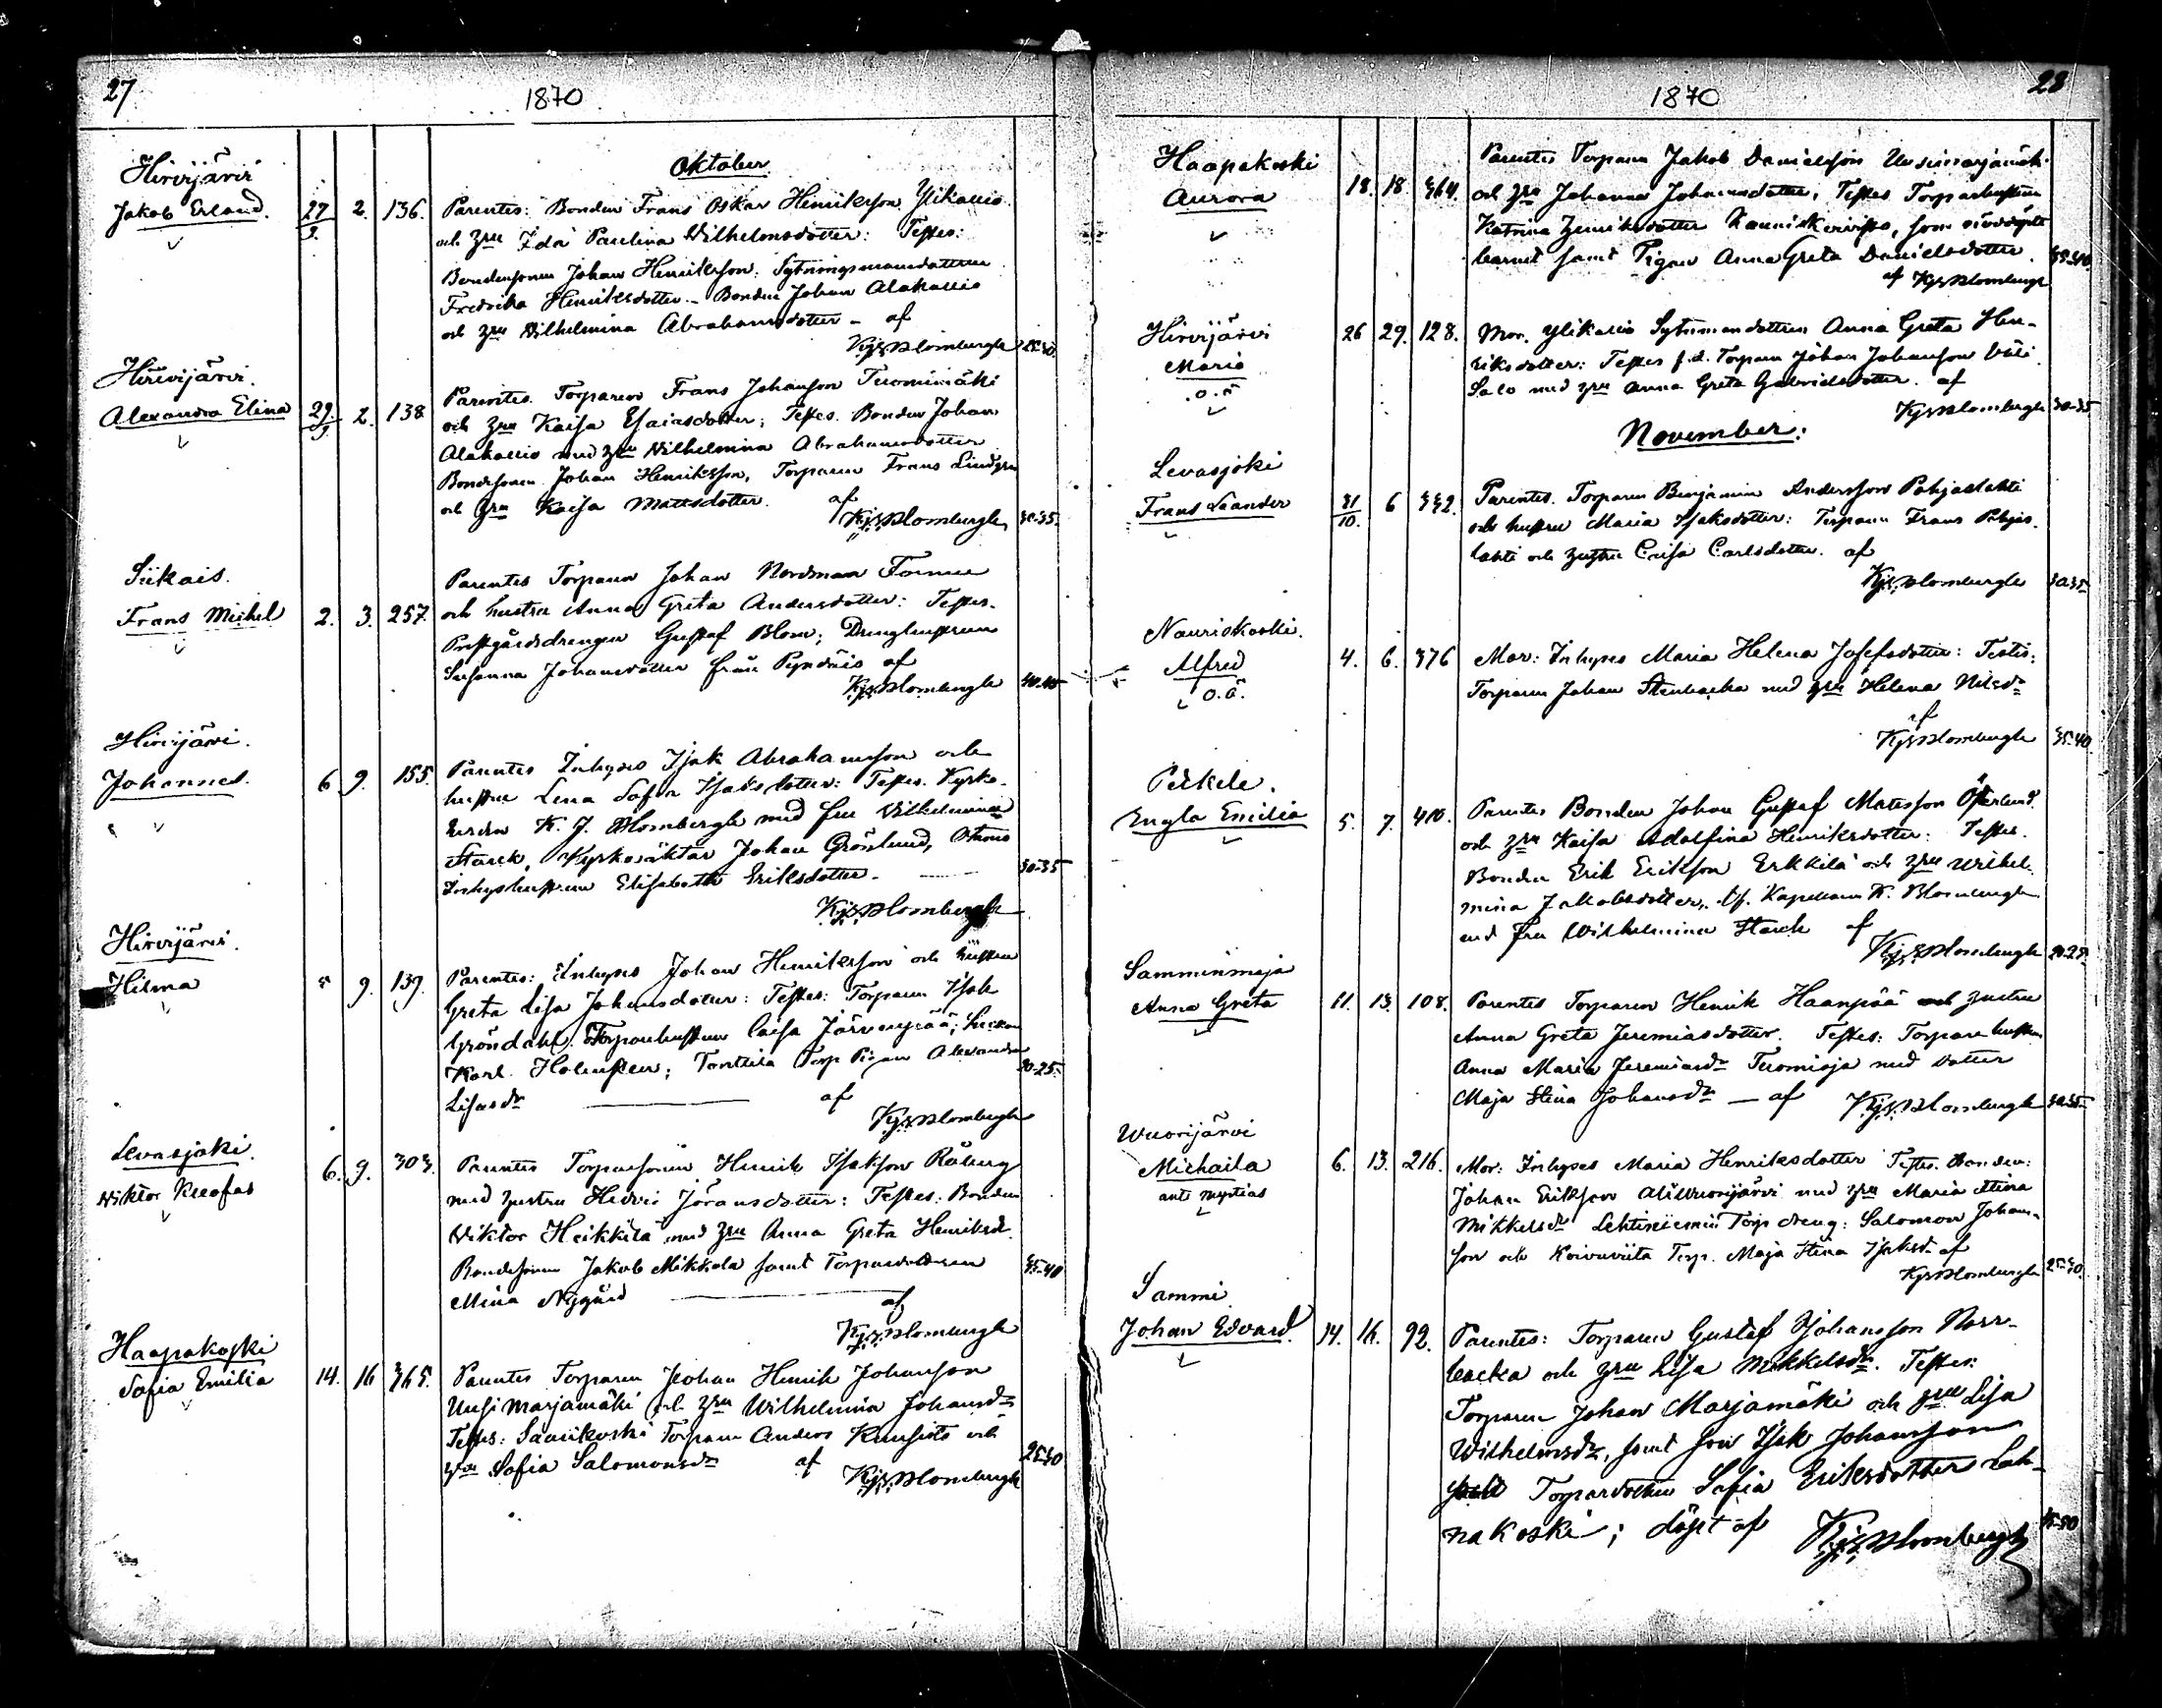 27
1870
Oktober
Hirvijärvi
Jakob Erland. 27/9. 2. 136. Parentes: Bonden Frans Oskar Henriksson Ylikallio
och hru Ida Paulina Wilhelmsdotter: Testes:
Bondesonen Johan Henriksson: Sytningsmansdottren
Fredrika Henriksdotter – Bonden Johan Alakallio
och hru Wilhelmina Abrahamsdotter – af
KJBlombergh 25-30
Hirvijärvi.
Alexandra Elina 29./9. 2. 138 Parentes. Torparen Frans Johanson Tuomimäki
och hru Kaisa Esaiasdotter; Testes. Bonden Johan
Alakallio med hru Wilhelmina Abrahamsdotter
Bondesonen Johan Henriksson, Torparen Frans Lindgren
och hru Kaisa Mattsdotter. af
KJBlombergh 30-35.
Siikais.
Frans Mickel 2. 3. 257. Parentes Torparen Johan Nordman
och hustru Anna Greta Andersdotter: Testes.
Prestgårdsdrengen Gustaf Blom; Drenghustrun
Susanna Johansdotter från af
KJBlombergh 40-45
Hirvijärvi.
Johannes. 6 9. 155. Parentes Inhyses Isak Abrahamsson och
hustru Lena Sofia Isaksdotter: Testes. Kyrko-
herden K. J. Blombergh med fru Vilhelmina
Starck, Kyrkoväktar Johan Grönlund,
Inhyshustrun Elisabeth Eriksdotter. 30-35
KJBlombergh
Hirvijärvi.
Hilma 5 9. 139. Parentes: Inhyses Johan Henriksson och hustru
Greta Lisa Johansdotter: Testes: Torparen Isak
Gröndahl. Torparehustrun Caisa Järvenpää;
Karl Holmsten; Torp Pigan Alexandra
Lisasdr af 20-25.
KJBlombergh
Levasjoki.
Wiktor Kleofas 6. 9. 303. Parentes Torparesonen Henrik Isakson Råberg
med hustru Hedvig Göransdotter: Testes. Bonden
Viktor Heikkilä med hru Anna Greta Henriksd.
Bondesonen Jakob Mikkola samt Torparedottren
Mina Nygård af 35-40
KJBlombergh
Haapakoski
Sofia Emilia 14. 16 365. Parentes Torparen Johan Henrik Johanson
Uusimarjamäki och hru Wilhelmina Johansdr
Testes: Torparen Anders Kuusisto och
hru Sofia Salomonsdr af 25-30
KJBlombergh
28
1870
Haapakoski
Aurora 18. 18. 364. Parentes Torparen Jakob Danielsson Uusimarjamäki
och hru Johanna Johansdotter; Testes Torparhustrun
Katrina Henriksdotter, som nöddöpte
barnet samt Pigan Anna Greta Danielsdotter.
af KJBlombergh 35-40.
Hirvijärvi
Maria
o.ä 26 29. 128. Mor. Ylikallio Sytninmandottren Anna Greta Hen-
riksdotter: Testes f.d. Torparen Johan Johansson Väli
Salo med hru Anna Greta Gabrielsdotter. af
KJBlombergh 30-35
November.
Levasjoki
Frans Leander 31/10. 6 332. Parentes. Torparen Benjamin Andersson Pohjaslahti
och hustru Maria Isaksdotter: Torparen Frans Pohjas-
lahti och hustru Caisa Carlsdotter. af
KJBlombergh 30-35
Nauriskoski.
Alfred
o.ä. 4. 6. 376 Mor: Inhyses Maria Helena Josefsdotter: Testis:
Torparen Johan Stenbacka med hru Helena Nilsdr
af
KJBlombergh 35-40.
Peikele.
Engla Emilia 5. 7. 410. Parentes Bonden Johan Gustaf Matsson Österlund.
och hru Kaisa Adolfina Henriksdotter: Testes.
Bonden Erik Erikson Erkkilä och hru Wilhel-
mina Jakobsdotter. Kapellanen K. Blombergh
med fru Wilhelmina Starck af
KJBlombergh 20-25.
Samminmaja
Anna Greta 11. 13. 108. Parentes Torparen Henrik Haanpää och hustru
Anna Greta Jeremiasdotter. Testes: Torpare hustrun
Anna Maria Jeremiasdr Tuomioja med dotter
Maja Stina Johansdr – af KJBlombergh 30-35
Wuorijärvi
Michaila
ante nuptias 6. 13. 216. Mor: Inhyses Maria Henriksdotter Testes. Bonden:
Johan Eriksson Aliwuorijärvi med hru Maria Stina
Mikkelsdr Lehtiniemi Torp dreng: Salomon Johans-
son och Koivuviita Torp. Maja Stina Isaksd. af
KJBlombergh 25-30.
Sammi
Johan Edvard. 14. 16. 92. Parentes: Torparen Gustaf Johansson Norr-
backa och hru Lisa Mikkelsdr. Testes:
Torparen Johan Marjamäki och hru Lisa
Wilhelmsdr, samt son Isak Johansson
Torpardottren Sofia Eriksdotter Lah-
nakoski; döpt af KJBlombergh